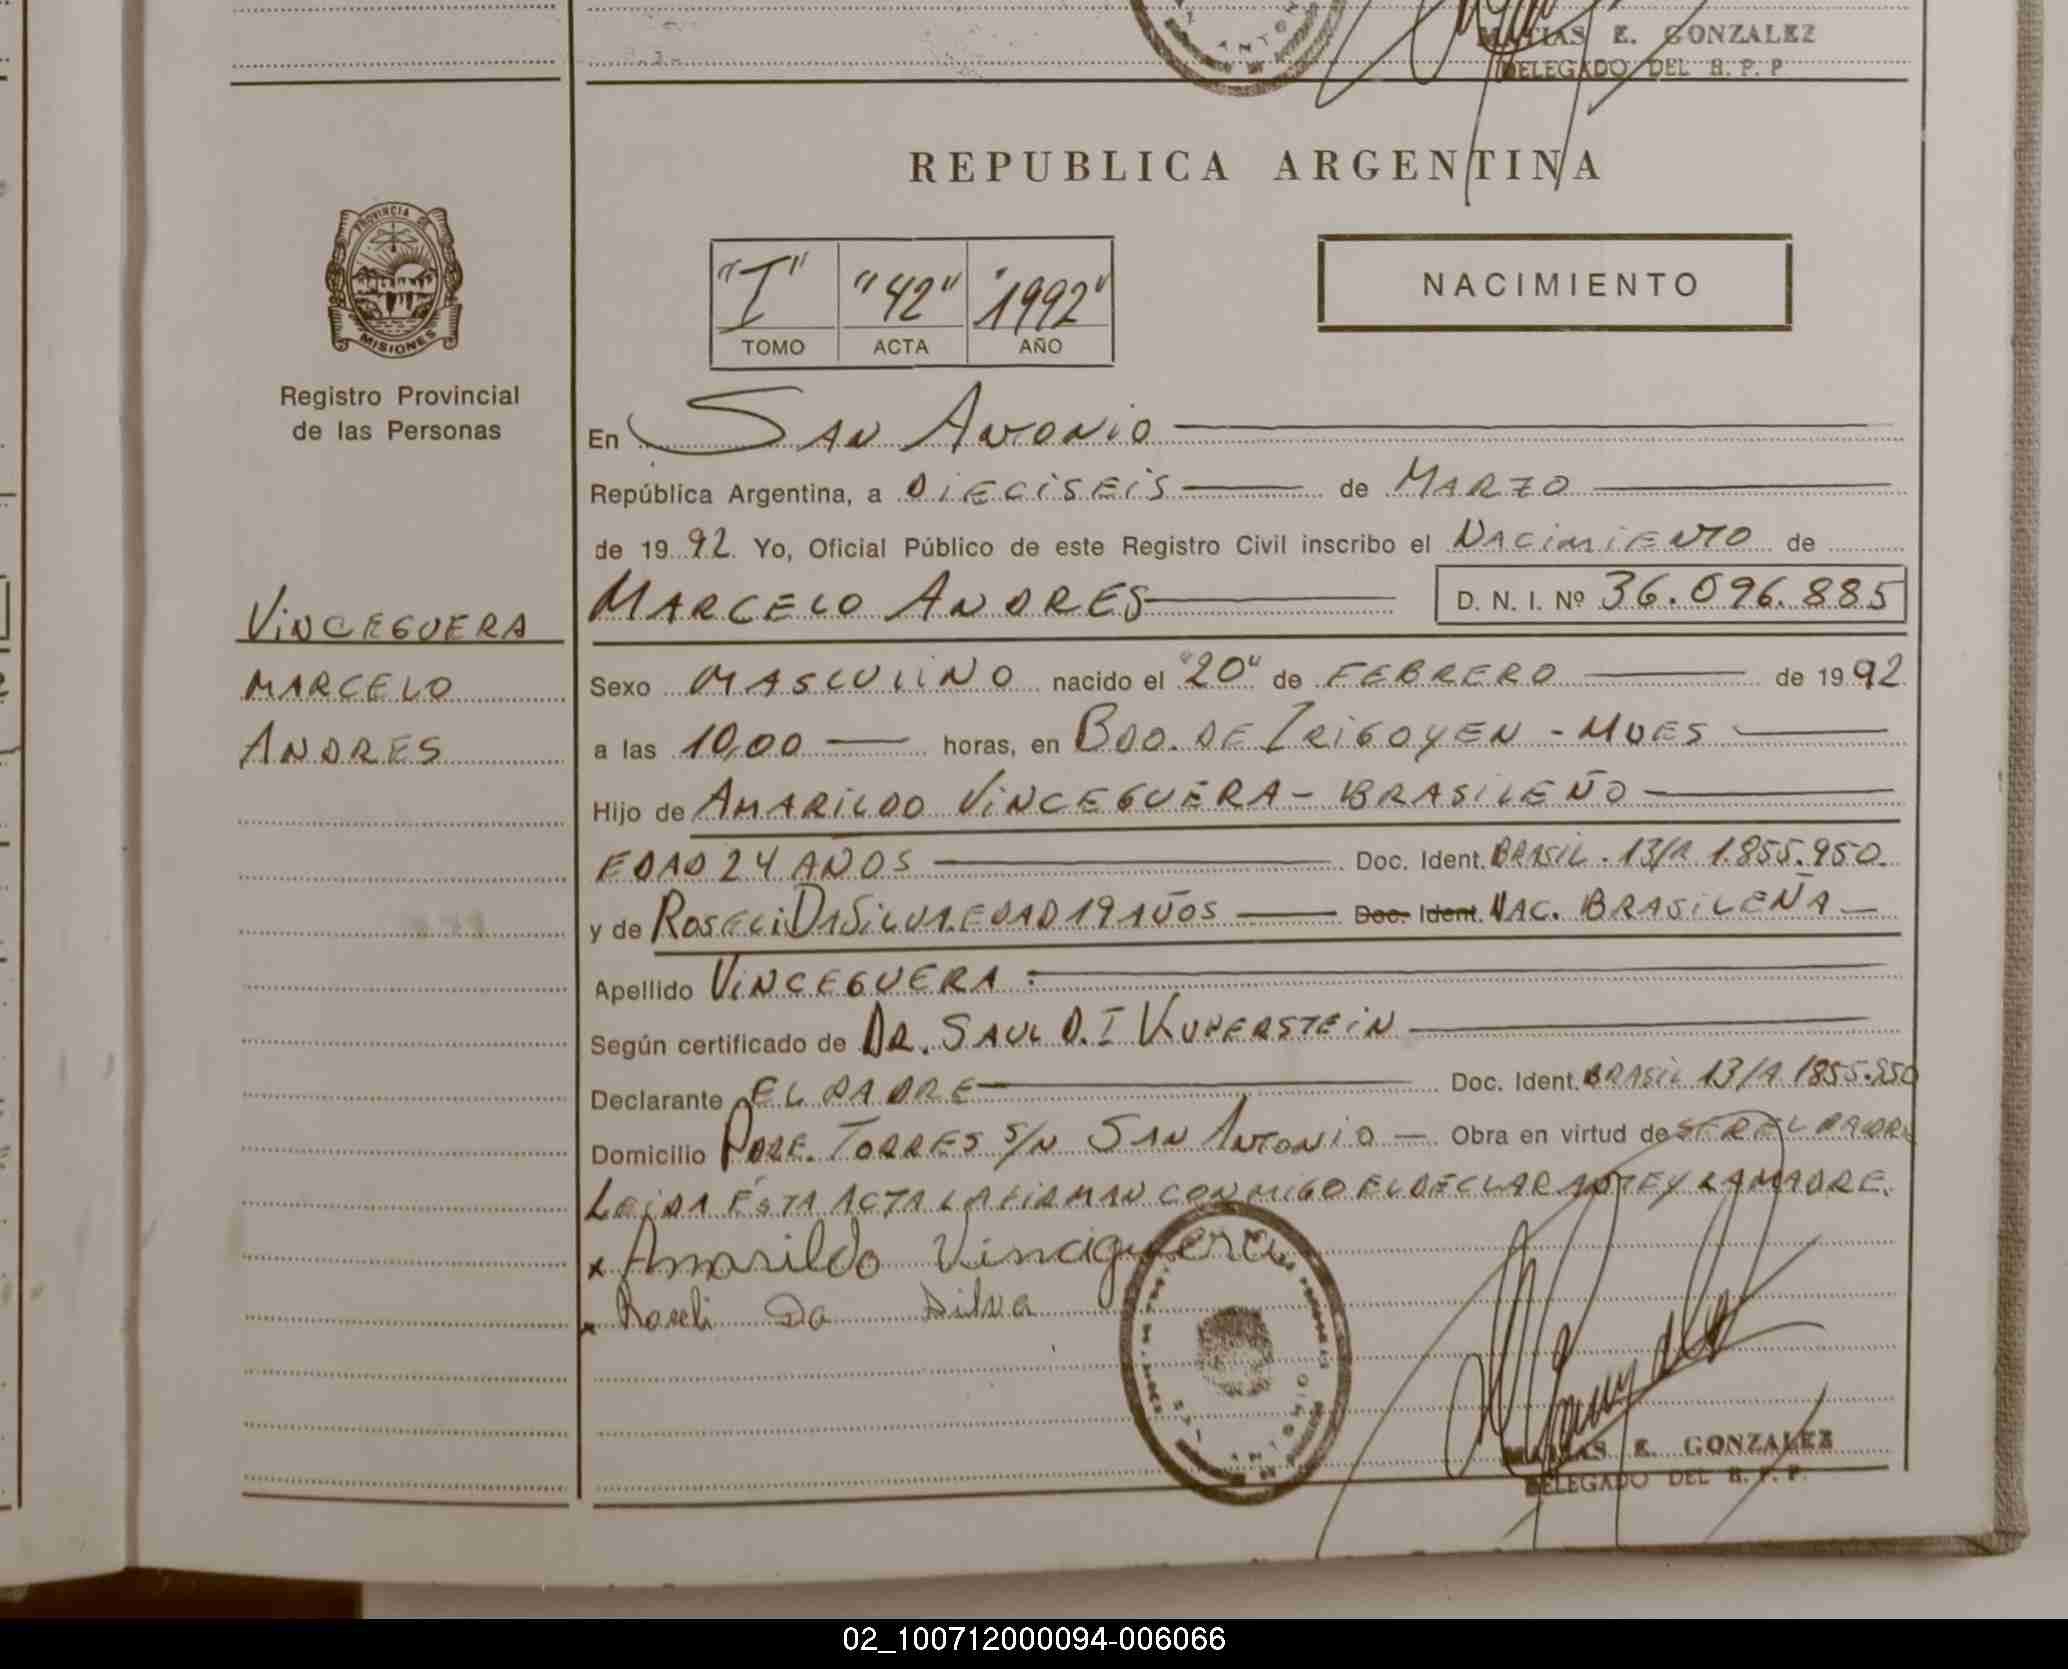 MATIAS E. GONZALEZ
DELEGADO DEL R. P. P
REPUBLICA ARGENTINA
PROVINCIA DE
MISIONES
"I" "42" "1992"
TOMO ACTA AÑO
NACIMIENTO
Registro Provincial
de las Personas
En SAN ANTONIO
República Argentina, a DIECISEIS de MARZO
de 1992. Yo, Oficial Público de este Registro Civil inscribo el NACIMIENTO de
MARCELO ANDRES D. N. I. Nº 36.096.885
VINCEGUERA
MARCELO
ANDRES
Sexo MASCULINO nacido el "20" de FEBRERO de 1992
a las 10,00 horas, en BDO. DE IRIGOYEN - MNES
Hijo de AMARILDO VINCEGUERA - BRASILEÑO
EDAD 24 AÑOS Doc. Ident. BRASIL. 13/R 1.855.950.
y de ROSELI DA SILVA. EDAD 19 AÑOS Doc. Ident. NAC. BRASILEÑA
Apellido VINCEGUERA
Según certificado de DR. SAUL D. I KUPERSTEIN
Declarante EL PADRE Doc. Ident. BRASIL 13/R 1855.950
Domicilio PDRE. TORRES S/N SAN ANTONIO Obra en virtud de SER EL PADRE
LEIDA ÉSTA ACTA LA FIRMAN CONMIGO EL DECLARANTE Y LA MADRE.
x Amarildo Vinciguera
x Roseli Da Silva
MATIAS E. GONZALEZ
DELEGADO DEL R. P. P.
02_100712000094-006066